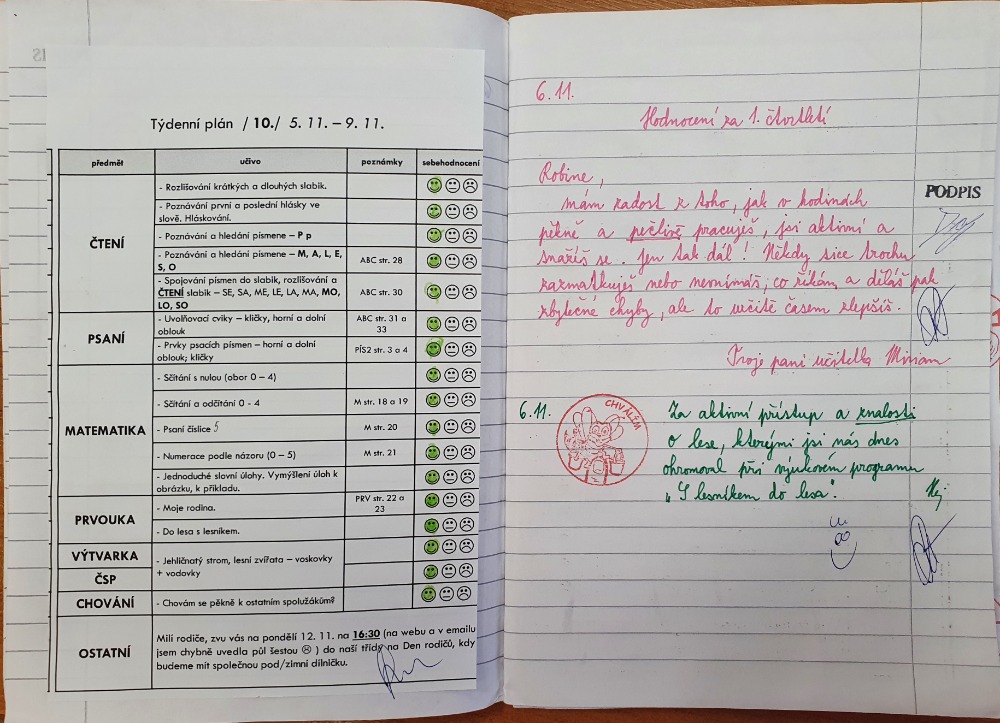 Týdenní plán / 10./ 5. 11. – 9. 11.
předmět učivo poznámky sebehodnocení
ČTENÍ
- Rozlišování krátkých a dlouhých slabik.
- Poznávání první a poslední hlásky ve
slově. Hláskování.
- Poznávání a hledání písmene – P p
- Poznávání a hledání písmene – M, A, L, E,
S, O
ABC str. 28
- Spojování písmen do slabik, rozlišování a
ČTENÍ slabik – SE, SA, ME, LE, LA, MA, MO,
LO, SO
ABC str. 30
PSANÍ
- Uvolňovací cviky – kličky, horní a dolní
oblouk
ABC str. 31 a
33
- Prvky psacích písmen – horní a dolní
oblouk; kličky
PÍS2 str. 3 a 4
MATEMATIKA
- Sčítání s nulou (obor 0 – 4)
- Sčítání a odčítání 0 - 4
M str. 18 a 19
- Psaní číslice 5
M str. 20
- Numerace podle názoru (0 – 5)
M str. 21
- Jednoduché slovní úlohy. Vymýšlení úloh k
obrázku, k příkladu.
PRVOUKA
- Moje rodina.
PRV str. 22 a
23
- Do lesa s lesníkem.
VÝTVARKA
ČSP
- Jehličnatý strom, lesní zvířata – voskovky
+ vodovky
CHOVÁNÍ
- Chovám se pěkně k ostatním spolužákům?
OSTATNÍ
Milí rodiče, zvu vás na pondělí 12. 11. na 16:30 (na webu a v emailu
jsem chybně uvedla půl šestou ☹ ) do naší třídy na Den rodičů, kdy
budeme mít společnou pod/zimní dílničku.
6. 11.
Hodnocení za 1. čtvrtletí
Robine,
mám radost z toho, jak v hodinách
pěkně a pečlivě pracuješ, jsi aktivní a
snažíš se. Jen tak dál! Někdy sice trochu
zazmatkuješ nebo nevnímáš, co říkám a děláš pak
zbytečné chyby, ale to určitě časem zlepšíš.
Tvoje paní učitelka Miriam
PODPIS
6. 11.
CHVÁLÍM
Za aktivní přístup a znalosti
o lese, kterými jsi nás dnes
ohromoval při výukovém programu
„S lesníkem do lesa".